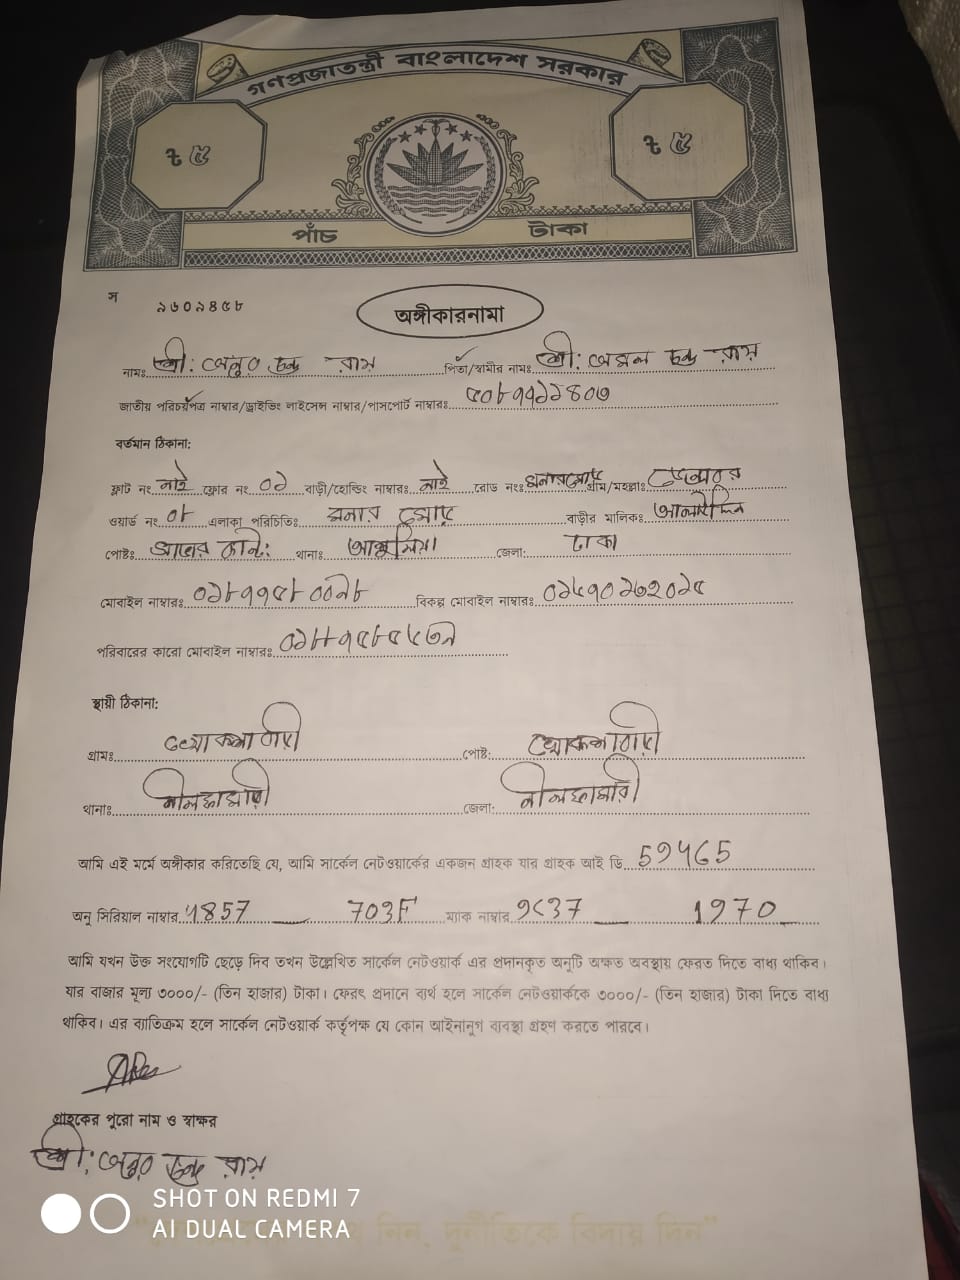 গণপ্রজাতন্ত্রী বাংলাদেশ সরকার
৳ ৫ ৳ ৫
পাঁচ টাকা
স ১৬০১৪৫৮
অঙ্গীকারনামা
নামঃ শ্রী: অনুর চন্দ্র রায় পিতা/স্বামীর নামঃ শ্রী: অমল চন্দ্র রায়
জাতীয় পরিচয়পত্র নাম্বার/ড্রাইভিং লাইসেন্স নাম্বার/পাসপোর্ট নাম্বারঃ ৫০৮৭৭১১৪০৩
বর্তমান ঠিকানা:
ফ্লাট নং নাই ফ্লোর নং ০১ বাড়ী/হোল্ডিং নাম্বারঃ নাই রোড নংঃ গ্রাম/মহল্লাঃ
ওয়ার্ড নং ০৮ এলাকা পরিচিতিঃ বাড়ীর মালিকঃ
পোষ্টঃ থানাঃ আশুলিয়া জেলা: ঢাকা
মোবাইল নাম্বারঃ ০১৮৭৭৫৮০০৯৮ বিকল্প মোবাইল নাম্বারঃ
পরিবারের কারো মোবাইল নাম্বারঃ
স্থায়ী ঠিকানা:
গ্রামঃ খোকশাবাড়ী পোষ্ট: খোকশাবাড়ী
থানাঃ নীলফামারী জেলা: নীলফামারী
আমি এই মর্মে অঙ্গীকার করিতেছি যে, আমি সার্কেল নেটওয়ার্কের একজন গ্রাহক যার গ্রাহক আই ডি
অনু সিরিয়াল নাম্বার 703F ম্যাক নাম্বার 1970
আমি যখন উক্ত সংযোগটি ছেড়ে দিব তখন উল্লেখিত সার্কেল নেটওয়ার্ক এর প্রদানকৃত অনুটি অক্ষত অবস্থায় ফেরত দিতে বাধ্য থাকিব।
যার বাজার মূল্য ৩০০০/- (তিন হাজার) টাকা। ফেরৎ প্রদানে ব্যর্থ হলে সার্কেল নেটওয়ার্ককে ৩০০০/- (তিন হাজার) টাকা দিতে বাধ্য
থাকিব। এর ব্যাতিক্রম হলে সার্কেল নেটওয়ার্ক কর্তৃপক্ষ যে কোন আইনানুগ ব্যবস্থা গ্রহণ করতে পারবে।
গ্রাহকের পুরো নাম ও স্বাক্ষর
শ্রী: অনুর চন্দ্র রায়
SHOT ON REDMI 7
AI DUAL CAMERA
নিন, দুর্নীতিকে বিদায় দিন"